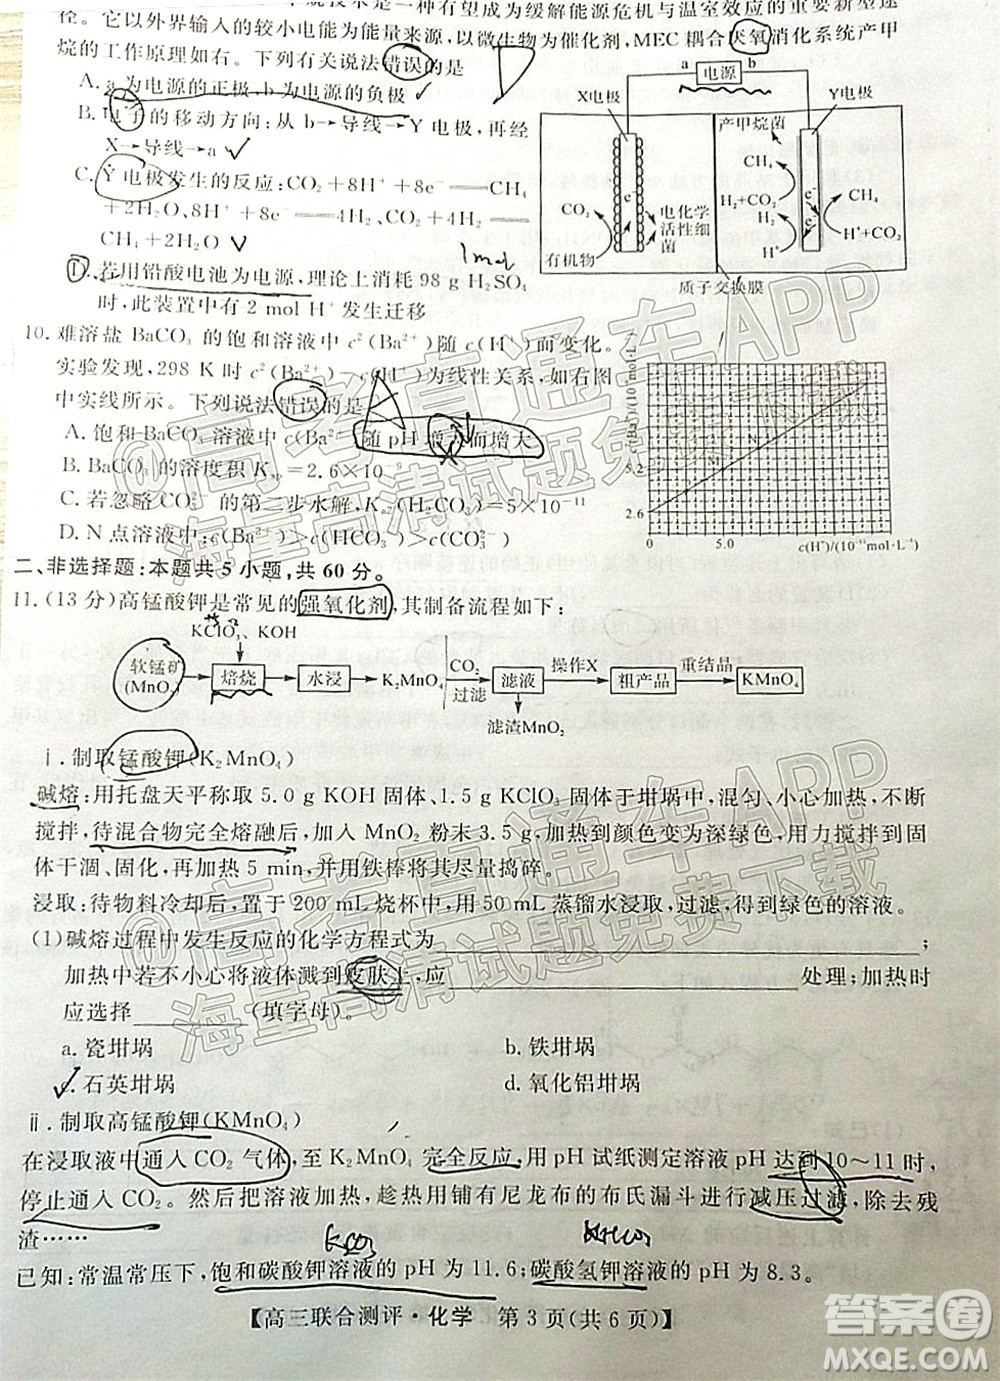 一种有望成为缓解能源危机与温室效应的重要新型途
径。它以外界输入的较小电能为能量来源,以微生物为催化剂,MEC耦合厌氧消化系统产甲
烷的工作原理如右。下列有关说法错误的是
A.a为电源的正极,b为电源的负极
B.电子的移动方向:从 b→导线→Y电极,再经
X→导线→a
C.Y电极发生的反应:CO₂+8H⁺+8e⁻══CH₄
+2H₂O、8H⁺+8e⁻══4H₂、CO₂+4H₂══
CH₄+2H₂O
D.若用铅酸电池为电源,理论上消耗 98 g H₂SO₄
时,此装置中有 2 mol H⁺发生迁移
1mol
a 电源 b
X电极
Y电极
产甲烷菌
CH₄
CH₄
H₂+CO₂
H₂
H⁺
H⁺+CO₂
CO₂
e⁻
e⁻
e⁻
有机物
电化学
活性细
菌
质子交换膜
10.难溶盐 BaCO₃ 的饱和溶液中 c²(Ba²⁺)随 c(H⁺)而变化。
实验发现,298 K时 c²(Ba²⁺)—c(H⁺)为线性关系,如右图
中实线所示。下列说法错误的是
A.饱和 BaCO₃ 溶液中 c(Ba²⁺)随 pH 增大而增大
B.BaCO₃ 的溶度积 Ksp=2.6×10⁻⁹
C.若忽略 CO₃²⁻ 的第二步水解,Ka2(H₂CO₃)=5×10⁻¹¹
D.N 点溶液中:c(Ba²⁺)>c(HCO₃⁻)>c(CO₃²⁻)
5.2
2.6
0
5.0
c(H⁺)/(10⁻¹¹mol·L⁻¹)
二、非选择题:本题共 5 小题,共 60 分。
11.(13 分)高锰酸钾是常见的强氧化剂,其制备流程如下:
KClO₃、KOH
软锰矿
(MnO₂)
焙烧
水浸
K₂MnO₄
CO₂
过滤
滤液
操作X
粗产品
重结晶
KMnO₄
滤渣MnO₂
ⅰ.制取锰酸钾(K₂MnO₄)
碱熔:用托盘天平称取 5.0 g KOH 固体、1.5 g KClO₃ 固体于坩埚中,混匀、小心加热,不断
搅拌,待混合物完全熔融后,加入 MnO₂ 粉末 3.5 g,加热到颜色变为深绿色,用力搅拌到固
体干涸、固化、再加热 5 min,并用铁棒将其尽量捣碎。
浸取:待物料冷却后,置于 200 mL 烧杯中,用 50 mL 蒸馏水浸取,过滤,得到绿色的溶液。
(1)碱熔过程中发生反应的化学方程式为________________;
加热中若不小心将液体溅到皮肤上,应________________处理;加热时
应选择________(填字母)。
a.瓷坩埚 b.铁坩埚
c.石英坩埚 d.氧化铝坩埚
ⅱ.制取高锰酸钾(KMnO₄)
在浸取液中通入 CO₂ 气体,至 K₂MnO₄ 完全反应,用 pH 试纸测定溶液 pH 达到 10~11 时,
停止通入 CO₂。然后把溶液加热,趁热用铺有尼龙布的布氏漏斗进行减压过滤,除去残
渣……
K₂CO₃ KHCO₃
已知:常温常压下,饱和碳酸钾溶液的 pH 为 11.6;碳酸氢钾溶液的 pH 为 8.3。
【高三联合测评·化学 第 3 页(共 6 页)】
@高考直通车APP
海量高清试题免费下载
@高考直通车APP
海量高清试题免费下载
答案圈
MXQE.COM